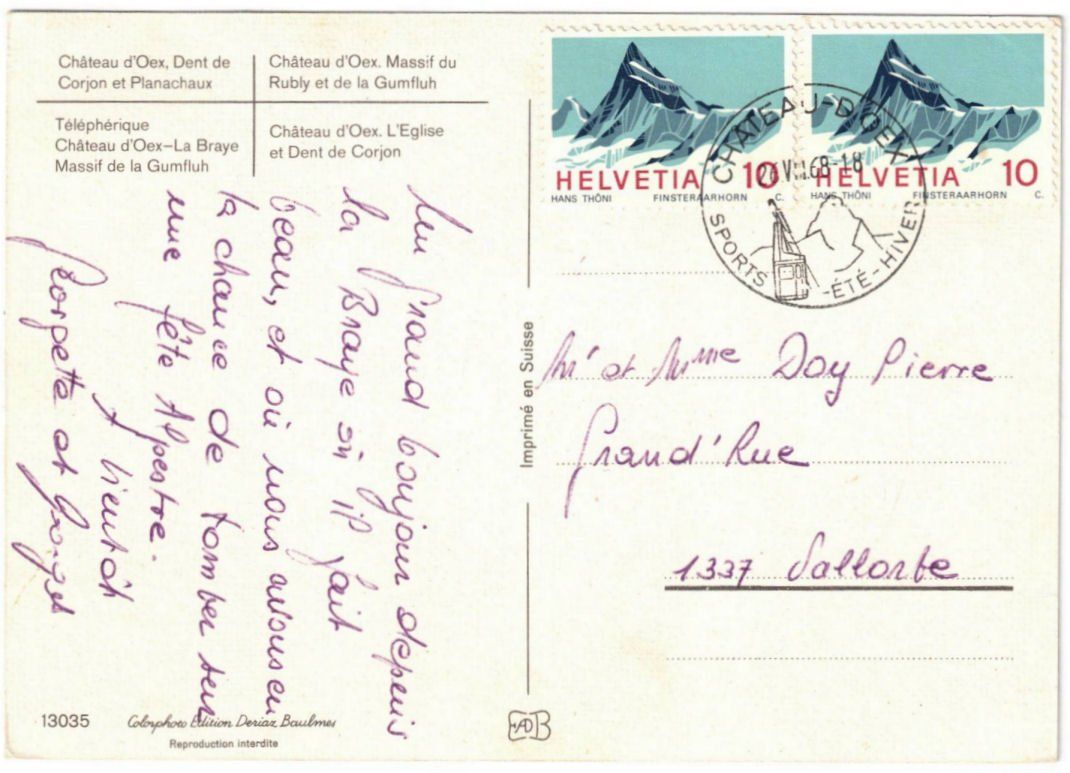 Château d'Oex, Dent de
Corjon et Planachaux
Château d'Oex. Massif du
Rubly et de la Gumfluh
Téléphérique
Château d'Oex–La Braye
Massif de la Gumfluh
Château d'Oex. L'Eglise
et Dent de Corjon
Un grand bonjour depuis
la Braye où il fait
beau, et où nous avons eu
la chance de tomber sur
une fête Alpestre.
A bientôt
Georgette et Georges
13035 Colorphoto Edition Deriaz Baulmes
Reproduction interdite
Imprimé en Suisse
HELVETIA 10
HANS THÖNI FINSTERAARHORN C.
HELVETIA 10
HANS THÖNI FINSTERAARHORN C.
CHÂTEAU-D'OEX
26 VII 68-18
SPORTS -ÉTÉ-HIVER
Mr et Mme Doy Pierre
Grand'Rue
1337 Vallorbe